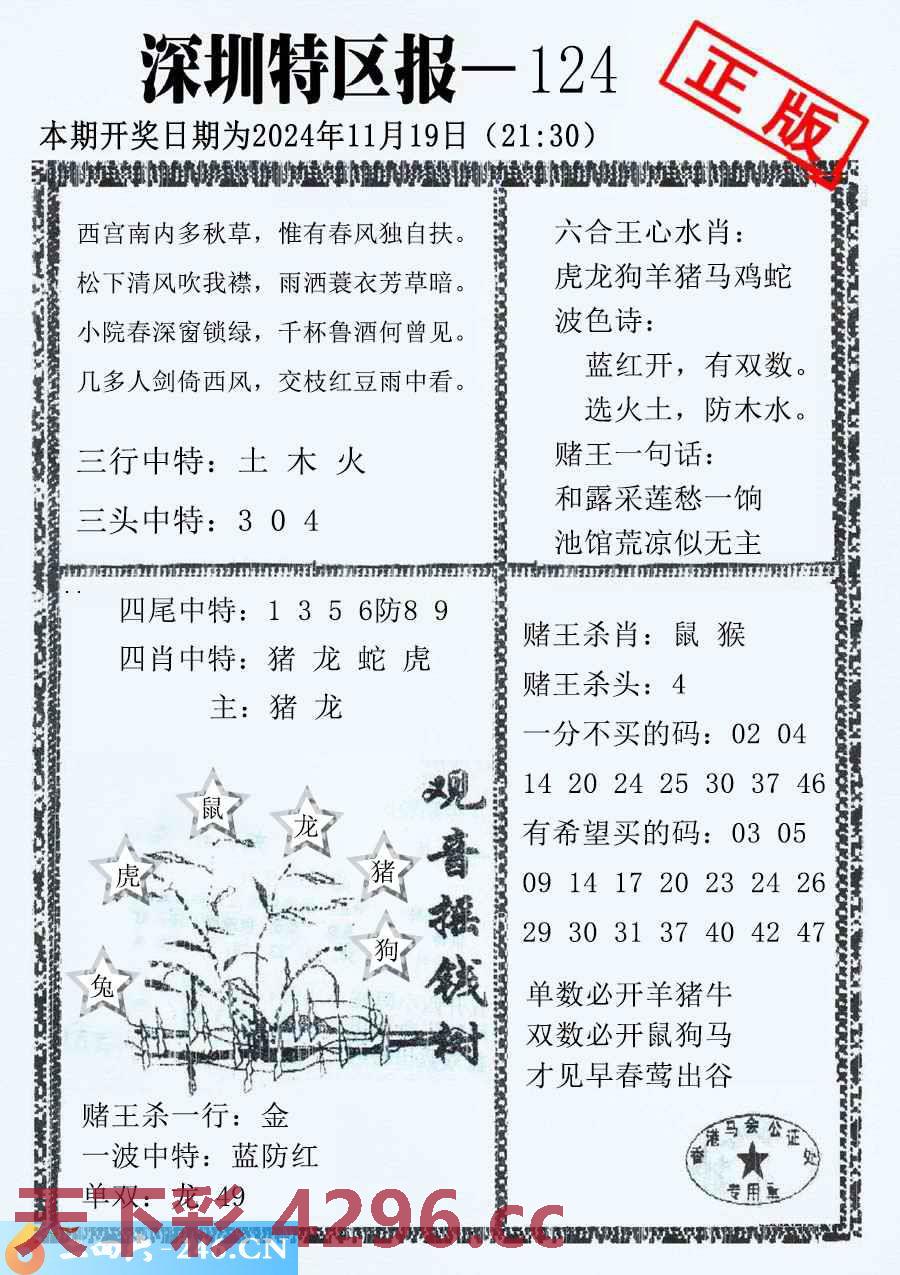 深圳特区报—124
正版
本期开奖日期为2024年11月19日（21:30）
西宫南内多秋草，惟有春风独自扶。
松下清风吹我襟，雨洒蓑衣芳草暗。
小院春深窗锁绿，千杯鲁酒何曾见。
几多人剑倚西风，交枝红豆雨中看。
三行中特：土 木 火
三头中特：3 0 4
六合王心水肖：
虎龙狗羊猪马鸡蛇
波色诗：
蓝红开，有双数。
选火土，防木水。
赌王一句话：
和露采莲愁一饷
池馆荒凉似无主
四尾中特：1 3 5 6防8 9
四肖中特：猪 龙 蛇 虎
主：猪 龙
鼠
龙
虎
猪
狗
兔
观音摇钱树
赌王杀一行：金
一波中特：蓝防红
单双：龙 49
赌王杀肖：鼠 猴
赌王杀头：4
一分不买的码：02 04
14 20 24 25 30 37 46
有希望买的码：03 05
09 14 17 20 23 24 26
29 30 31 37 40 42 47
单数必开羊猪牛
双数必开鼠狗马
才见早春莺出谷
香港马会公证处
专用章
天下彩 4296.cc
246.CN